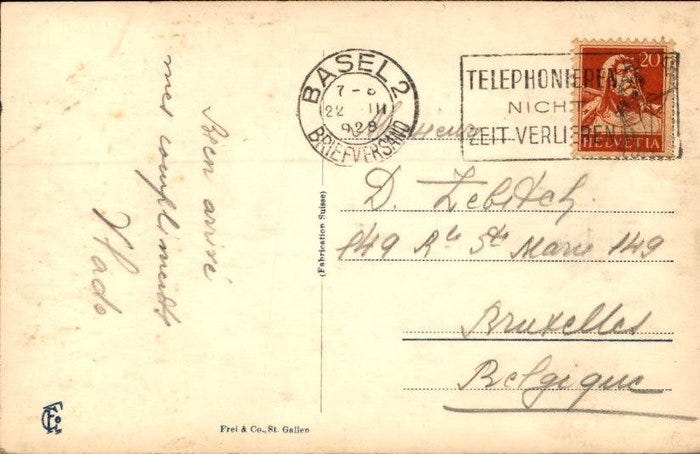 Bien arrivé
mes compliments
BASEL 2
7-8
22 III
928
BRIEFVERSAND
TELEPHONIEREN
NICHT
ZEIT VERLIEREN
20
HELVETIA
Monsieur
D. Zebitch
149 Rue Ste Marie 149
Bruxelles
Belgique
(Fabrication Suisse)
Frei & Co., St. Gallen